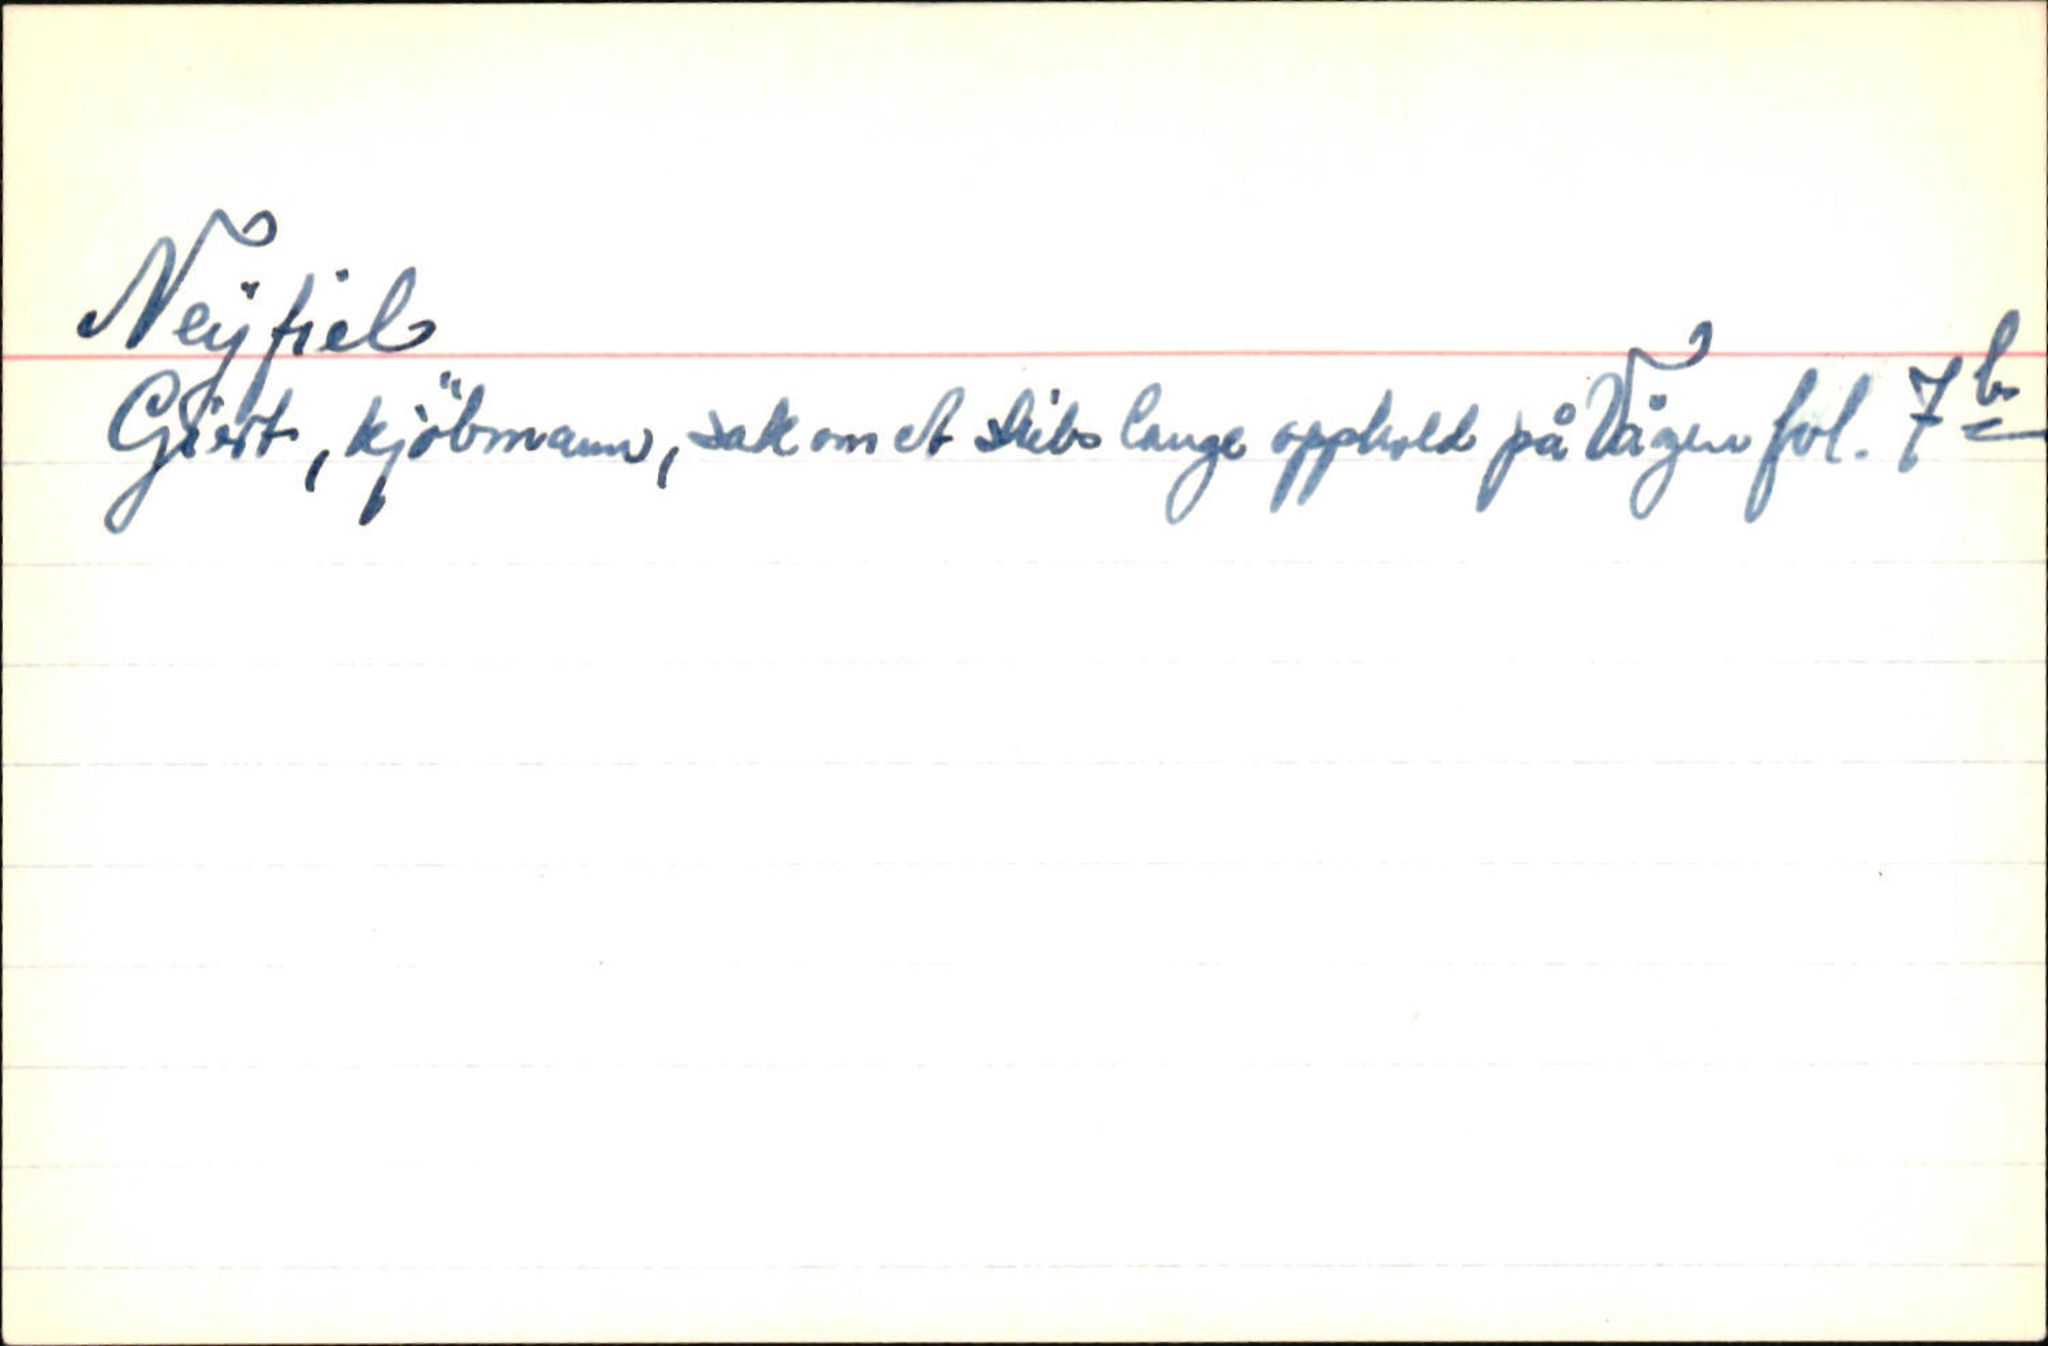 Neÿfiel
Giert, kjöbmann, sak om et skibs lange opphold på Vågen fol. 7b